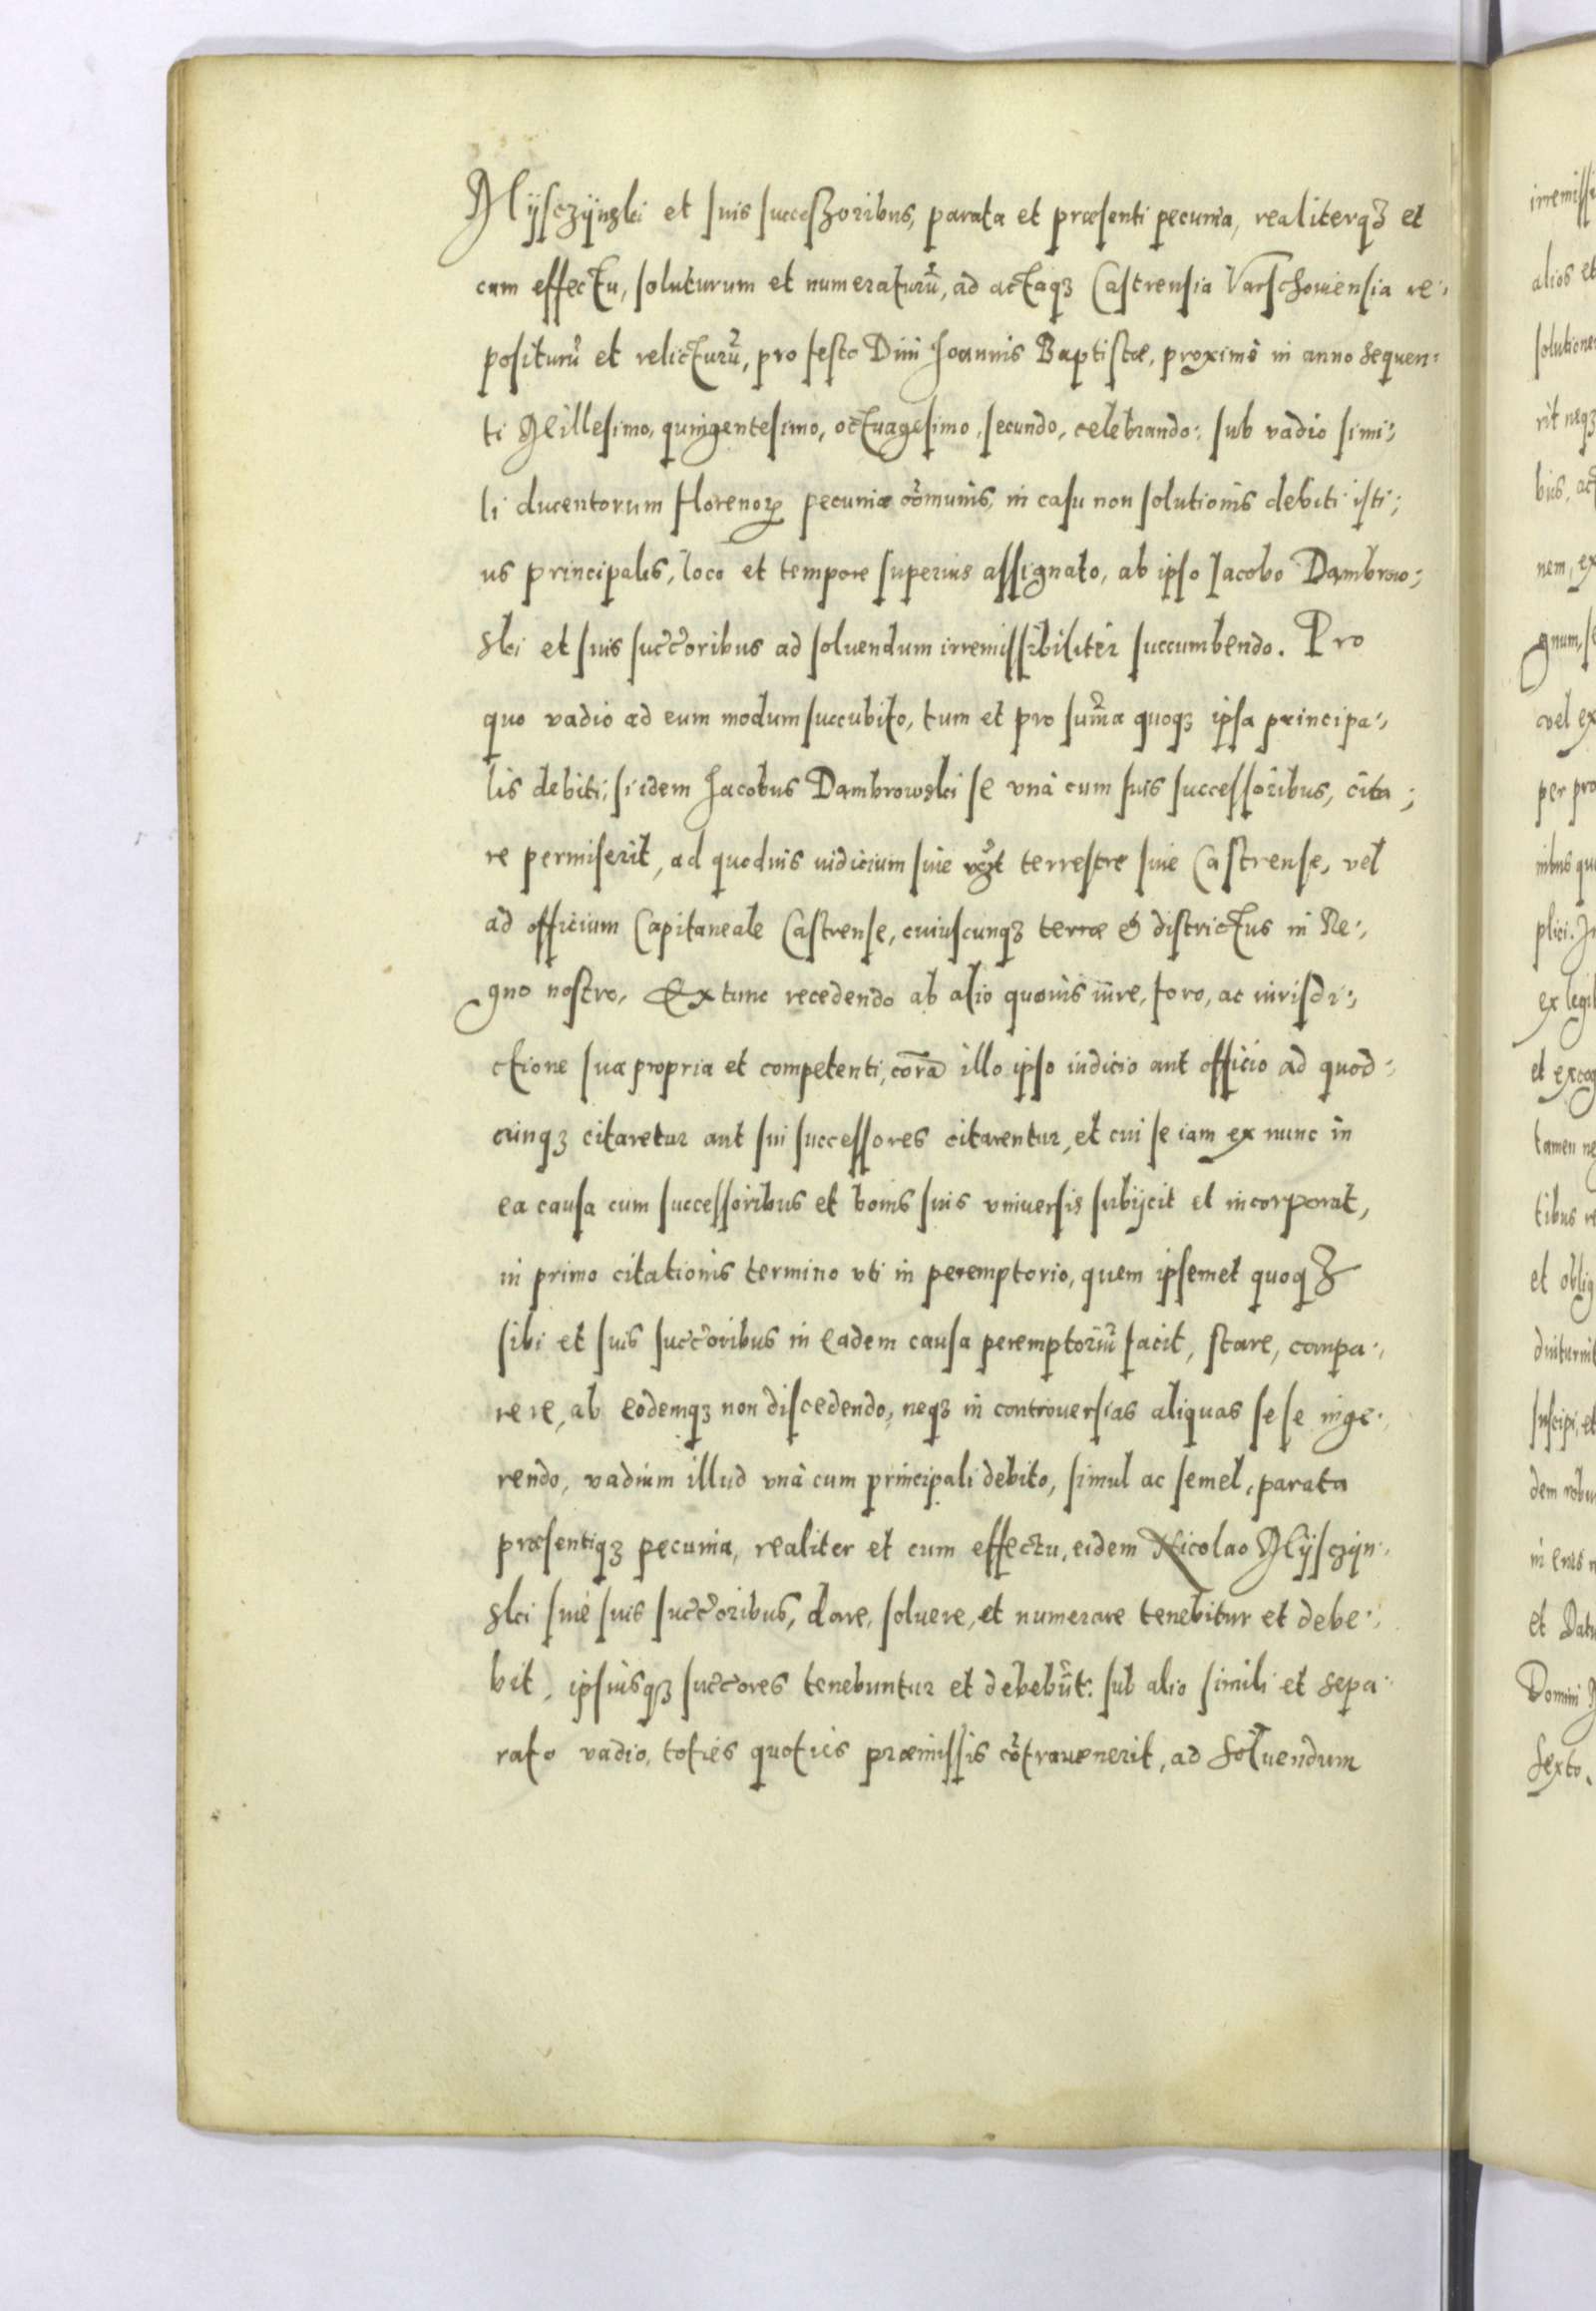 Mÿsczÿnski et suis successoribus, parata et præsenti pecunia, realiterqꝫ et
cum effectu, soluturum et numeraturū, ad actaqꝫ Castrensia Varschoviensia re:
positurū et relicturū, pro festo Diui Joannis Baptistæ, proximè in anno sequen:
ti Millesimo, quingentesimo, octuagesimo, secundo, celebrando: sub vadio simi:
li ducentorum florenoꝝ pecuniæ cōmunis, in casu non solutionis debiti isti:
us principalis, loco et tempore superius assignato, ab ipso Jacobo Dambrow:
ski et suis succ̃oribus ad soluendum irremissibiliter succumbendo. Pro
quo vadio ad eum modum succubito, tum et pro sum̃a quoqꝫ ipsa principa:
lis debiti, si idem Jacobus Dambrowski se vnà cum suis successoribus, cita:
re permiserit, ad quoduis iudicium siue terrestre siue Castrense, vel
ad officium Capitaneale Castrense, cuiuscunqꝫ terræ & districtus in Re:
gno nostro, Extunc recedendo ab alio quouis iure, foro, ac iurisdi:
ctione sua propria et competenti, corā illo ipso iudicio aut officio ad quod:
cunqꝫ citaretur aut sui successores citarentur, et cui se iam ex nunc in
ea causa cum successoribus et bonis suis vniuersis subijcit et incorporat,
in primo citationis termino vti in peremptorio, quem ipsemet quoqꝫ
sibi et suis succ̃oribus in eadem causa peremptoriū facit, stare, compa:
rere, ab eodemqꝫ non discedendo, neqꝫ in controuersias aliquas sese inge:
rendo, vadium illud vnà cum principali debito, simul ac semel, parata
præsentiqꝫ pecunia, realiter et cum effectu, eidem Nicolao Mÿsczÿn:
ski siue suis succ̃oribus, dare, soluere, et numerare tenebitur et debe:
bit, ipsiusqꝫ succ̃ores tenebuntur et debebūt: sub alio simili et sepa:
rato vadio, toties quoties præmissis cōtrauenerit, ad soluendum